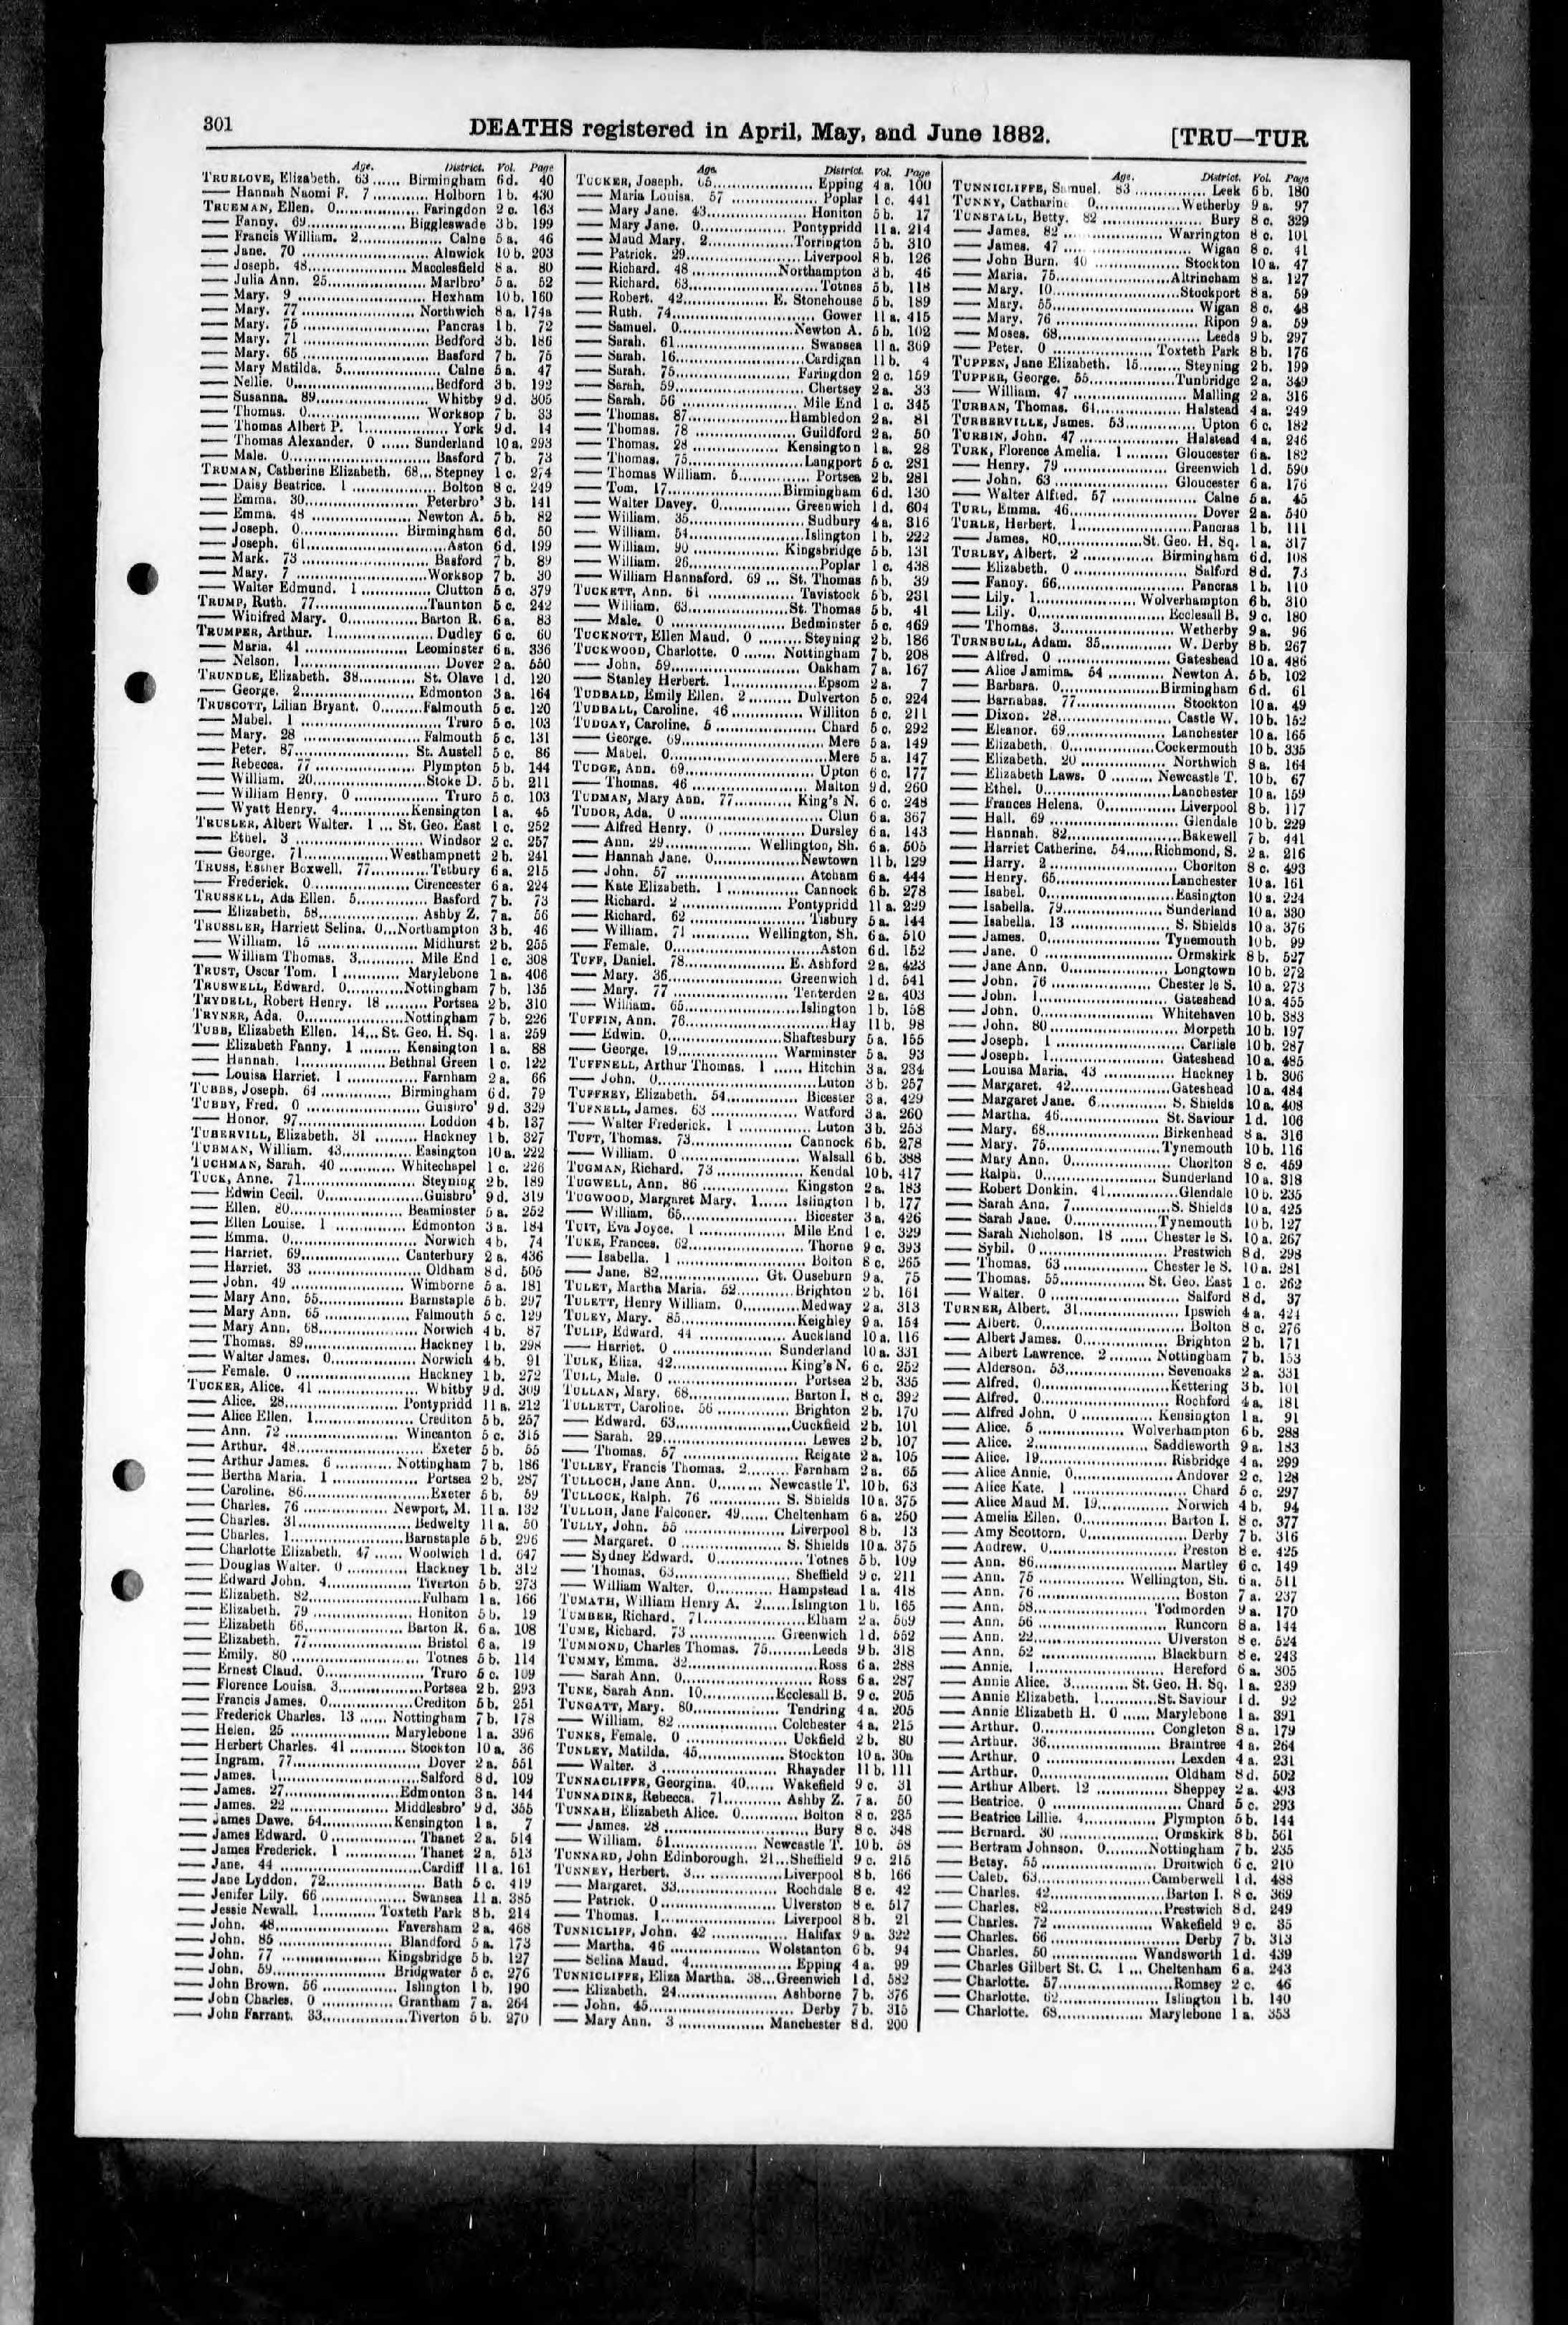 301
DEATHS registered in April, May, and June 1882.
[TRU—TUR
Age. District. Vol. Page
TRUELOVE, Elizabeth. 63 ...... Birmingham 6 d. 40
—— Hannah Naomi F. 7 ............ Holborn 1 b. 430
TRUEMAN, Ellen. 0.................. Faringdon 2 c. 163
—— Fanny. 69..................... Biggleswade 3 b. 199
—— Francis William. 2.................. Calne 5 a. 46
—— Jane. 70 ............................ Alnwick 10 b. 203
—— Joseph. 48...................... Macclesfield 8 a. 80
—— Julia Ann. 25..................... Marlbro' 5 a. 52
—— Mary. 9 ............................ Hexham 10 b. 160
—— Mary. 77 ......................... Northwich 8 a. 174a
—— Mary. 75 ............................ Pancras 1 b. 72
—— Mary. 71 ............................ Bedford 3 b. 186
—— Mary. 65 ............................ Basford 7 b. 75
—— Mary Matilda. 5..................... Calne 5 a. 47
—— Nellie. 0............................... Bedford 3 b. 192
—— Susanna. 89......................... Whitby 9 d. 305
—— Thomas. 0......................... Worksop 7 b. 33
—— Thomas Albert P. 1................... York 9 d. 14
—— Thomas Alexander. 0 ...... Sunderland 10 a. 293
—— Male. 0............................... Basford 7 b. 73
TRUMAN, Catherine Elizabeth. 68... Stepney 1 c. 274
—— Daisy Beatrice. 1 .................. Bolton 8 c. 249
—— Emma. 30......................... Peterbro' 3 b. 141
—— Emma. 48 ...................... Newton A. 5 b. 82
—— Joseph. 0...................... Birmingham 6 d. 50
—— Joseph. 61............................... Aston 6 d. 199
—— Mark. 73 ............................ Basford 7 b. 89
—— Mary. 7 ............................ Worksop 7 b. 30
—— Walter Edmund. 1 ............... Clutton 5 c. 379
TRUMP, Ruth. 77......................... Taunton 5 c. 242
—— Winifred Mary. 0............... Barton R. 6 a. 83
TRUMPER, Arthur. 1...................... Dudley 6 c. 60
—— Maria. 41 ....................... Leominster 6 a. 336
—— Nelson. 1............................... Dover 2 a. 550
TRUNDLE, Elizabeth. 38............ St. Olave 1 d. 120
—— George. 2......................... Edmonton 3 a. 164
TRUSCOTT, Lilian Bryant. 0......... Falmouth 5 c. 120
—— Mabel. 1 ............................... Truro 5 c. 103
—— Mary. 28 ......................... Falmouth 5 c. 131
—— Peter. 87......................... St. Austell 5 c. 86
—— Rebecca. 77 ...................... Plympton 5 b. 144
—— William. 20......................... Stoke D. 5 b. 211
—— William Henry. 0 .................. Truro 5 c. 103
—— Wyatt Henry. 4............... Kensington 1 a. 45
TRUSLER, Albert Walter. 1 ... St. Geo. East 1 c. 252
—— Ethel. 3 ............................ Windsor 2 c. 257
—— George. 71.................. Westhampnett 2 b. 241
TRUSS, Esther Boxwell. 77............ Tetbury 6 a. 215
—— Frederick. 0.................. Cirencester 6 a. 224
TRUSSELL, Ada Ellen. 5............... Basford 7 b. 73
—— Elizabeth. 58...................... Ashby Z. 7 a. 56
TRUSSLER, Harriett Selina. 0...Northampton 3 b. 46
—— William. 15 ...................... Midhurst 2 b. 255
—— William Thomas. 3............ Mile End 1 c. 308
TRUST, Oscar Tom. 1 ............ Marylebone 1 a. 406
TRUSWELL, Edward. 0............ Nottingham 7 b. 135
TRYDELL, Robert Henry. 18 ......... Portsea 2 b. 310
TRYNER, Ada. 0..................... Nottingham 7 b. 226
TUBB, Elizabeth Ellen. 14...St. Geo. H. Sq. 1 a. 259
—— Elizabeth Fanny. 1 ......... Kensington 1 a. 88
—— Hannah. 1.................. Bethnal Green 1 c. 122
—— Louisa Harriet. 1 ............... Farnham 2 a. 66
TUBBS, Joseph. 64 ............... Birmingham 6 d. 79
TUBBY, Fred. 0 ......................... Guisbro' 9 d. 329
—— Honor. 97............................ Loddon 4 b. 137
TUBERVILL, Elizabeth. 31 ......... Hackney 1 b. 327
TUBMAN, William. 43............... Easington 10 a. 222
TUCHMAN, Sarah. 40 ............ Whitechapel 1 c. 226
TUCK, Anne. 71......................... Steyning 2 b. 189
—— Edwin Cecil. 0..................... Guisbro' 9 d. 319
—— Ellen. 80......................... Beaminster 5 a. 252
—— Ellen Louise. 1 ............... Edmonton 3 a. 184
—— Emma. 0............................ Norwich 4 b. 74
—— Harriet. 69...................... Canterbury 2 a. 436
—— Harriet. 33 ......................... Oldham 8 d. 505
—— John. 49 ......................... Wimborne 5 a. 181
—— Mary Ann. 55.................. Barnstaple 5 b. 297
—— Mary Ann. 65 .................. Falmouth 5 c. 129
—— Mary Ann. 68..................... Norwich 4 b. 87
—— Thomas. 89......................... Hackney 1 b. 298
—— Walter James. 0.................. Norwich 4 b. 91
—— Female. 0 ......................... Hackney 1 b. 272
TUCKER, Alice. 41 ...................... Whitby 9 d. 309
—— Alice. 28......................... Pontypridd 11 a. 212
—— Alice Ellen. 1...................... Crediton 5 b. 257
—— Ann. 72 ......................... Wincanton 5 c. 315
—— Arthur. 48............................ Exeter 5 b. 55
—— Arthur James. 6 ............ Nottingham 7 b. 186
—— Bertha Maria. 1 .................. Portsea 2 b. 287
—— Caroline. 86......................... Exeter 5 b. 59
—— Charles. 76 .................. Newport, M. 11 a. 132
—— Charles. 31......................... Bedwelty 11 a. 50
—— Charles. 1......................... Barnstaple 5 b. 296
—— Charlotte Elizabeth. 47 ...... Woolwich 1 d. 647
—— Douglas Walter. 0 ............ Hackney 1 b. 312
—— Edward John. 4.................. Tiverton 5 b. 273
—— Elizabeth. 82......................... Fulham 1 a. 166
—— Elizabeth. 79 ...................... Honiton 5 b. 19
—— Elizabeth 66...................... Barton R. 6 a. 108
—— Elizabeth. 77......................... Bristol 6 a. 19
—— Emily. 80 ............................ Totnes 5 b. 114
—— Ernest Claud. 0...................... Truro 5 c. 109
—— Florence Louisa. 3............... Portsea 2 b. 293
—— Francis James. 0............... Crediton 5 b. 251
—— Frederick Charles. 13 ...... Nottingham 7 b. 178
—— Helen. 25 ...................... Marylebone 1 a. 396
—— Herbert Charles. 41 ............ Stockton 10 a. 36
—— Ingram. 77............................ Dover 2 a. 551
—— James. 1............................... Salford 8 d. 109
—— James. 27......................... Edmonton 3 a. 144
—— James. 22 ...................... Middlesbro' 9 d. 355
—— James Dawe. 54............... Kensington 1 a. 7
—— James Edward. 0 .................. Thanet 2 a. 514
—— James Frederick. 1 ............... Thanet 2 a. 513
—— Jane. 44 ............................... Cardiff 11 a. 161
—— Jane Lyddon. 72...................... Bath 5 c. 419
—— Jenifer Lily. 66 .................. Swansea 11 a. 385
—— Jessie Newall. 1............ Toxteth Park 8 b. 214
—— John. 48......................... Faversham 2 a. 468
—— John. 85 ......................... Blandford 5 a. 173
—— John. 77 ...................... Kingsbridge 5 b. 127
—— John. 59......................... Bridgwater 5 c. 276
—— John Brown. 56 .................. Islington 1 b. 190
—— John Charles. 0 ............... Grantham 7 a. 264
—— John Farrant. 33.................. Tiverton 5 b. 270
Age. District. Vol. Page
TUCKER, Joseph. 65..................... Epping 4 a. 100
—— Maria Louisa. 57 .................. Poplar 1 c. 441
—— Mary Jane. 43...................... Honiton 5 b. 17
—— Mary Jane. 0.................. Pontypridd 11 a. 214
—— Maud Mary. 2.................. Torrington 5 b. 310
—— Patrick. 29......................... Liverpool 8 b. 126
—— Richard. 48 .................. Northampton 3 b. 46
—— Richard. 63............................ Totnes 5 b. 118
—— Robert. 42.................. E. Stonehouse 5 b. 189
—— Ruth. 74............................... Gower 11 a. 415
—— Samuel. 0......................... Newton A. 5 b. 102
—— Sarah. 61 ............................ Swansea 11 a. 369
—— Sarah. 16............................ Cardigan 11 b. 4
—— Sarah. 75......................... Faringdon 2 c. 159
—— Sarah. 59 ............................ Chertsey 2 a. 33
—— Sarah. 56 ......................... Mile End 1 c. 345
—— Thomas. 87...................... Hambledon 2 a. 81
—— Thomas. 78 ...................... Guildford 2 a. 50
—— Thomas. 28 ...................... Kensington 1 a. 28
—— Thomas. 75......................... Langport 5 c. 281
—— Thomas William. 5............... Portsea 2 b. 281
—— Tom. 17......................... Birmingham 6 d. 130
—— Walter Davey. 0............... Greenwich 1 d. 604
—— William. 35......................... Sudbury 4 a. 316
—— William. 54......................... Islington 1 b. 222
—— William. 90 ................... Kingsbridge 5 b. 131
—— William. 26............................ Poplar 1 c. 438
—— William Hannaford. 69 ... St. Thomas 5 b. 39
TUCKETT, Ann. 61 ...................... Tavistock 5 b. 231
—— William. 63...................... St. Thomas 5 b. 41
—— Male. 0 ......................... Bedminster 5 c. 469
TUCKNOTT, Ellen Maud. 0 ......... Steyning 2 b. 186
TUCKWOOD, Charlotte. 0 ....... Nottingham 7 b. 208
—— John. 59............................ Oakham 7 a. 167
—— Stanley Herbert. 1.................. Epsom 2 a. 7
TUDBALD, Emily Ellen. 2......... Dulverton 5 c. 224
TUDBALL, Caroline. 46 ............... Williton 5 c. 211
TUDGAY, Caroline. 5 ...................... Chard 5 c. 292
—— George. 69............................... Mere 5 a. 149
—— Mabel. 0.................................. Mere 5 a. 147
TUDGE, Ann. 69............................ Upton 6 c. 177
—— Thomas. 46 ......................... Malton 9 d. 260
TUDMAN, Mary Ann. 77............ King's N. 6 c. 248
TUDOR, Ada. 0 ............................... Clun 6 a. 367
—— Alfred Henry. 0 .................. Dursley 6 a. 143
—— Ann. 29.................. Wellington, Sh. 6 a. 505
—— Hannah Jane. 0................... Newtown 11 b. 129
—— John. 57 ............................ Atcham 6 a. 444
—— Kate Elizabeth. 1 ............... Cannock 6 b. 278
—— Richard. 2 ...................... Pontypridd 11 a. 229
—— Richard. 62 ......................... Tisbury 5 a. 144
—— William. 71 ............ Wellington, Sh. 6 a. 510
—— Female. 0............................... Aston 6 d. 152
TUFF, Daniel. 78...................... E. Ashford 2 a. 423
—— Mary. 36......................... Greenwich 1 d. 541
—— Mary. 77 ......................... Tenterden 2 a. 403
—— William. 65......................... Islington 1 b. 158
TUFFIN, Ann. 76............................... Hay 11 b. 98
—— Edwin. 0......................... Shaftesbury 5 a. 155
—— George. 19...................... Warminster 5 a. 93
TUFFNELL, Arthur Thomas. 1 ...... Hitchin 3 a. 234
—— John. 0.................................. Luton 3 b. 257
TUFFREY, Elizabeth. 54............... Bicester 3 a. 429
TUFNELL, James. 63 .................. Watford 3 a. 260
—— Walter Frederick. 1 ............... Luton 3 b. 253
TUFT, Thomas. 73...................... Cannock 6 b. 278
—— William. 0 ......................... Walsall 6 b. 388
TUGMAN, Richard. 73 .................. Kendal 10 b. 417
TUGWELL, Ann. 86 .................. Kingston 2 a. 183
TUGWOOD, Margaret Mary. 1...... Islington 1 b. 177
—— William. 65......................... Bicester 3 a. 426
TUIT, Eva Joyce. 1 .................. Mile End 1 c. 329
TUKE, Frances. 62......................... Thorne 9 c. 393
—— Isabella. 1 ............................ Bolton 8 c. 265
—— Jane. 82...................... Gt. Ouseburn 9 a. 75
TULET, Martha Maria. 52............ Brighton 2 b. 161
TULETT, Henry William. 0............ Medway 2 a. 313
TULEY, Mary. 85......................... Keighley 9 a. 154
TULIP, Edward. 44 .................. Auckland 10 a. 116
—— Harriet. 0 ...................... Sunderland 10 a. 331
TULK, Eliza. 42......................... King's N. 6 c. 252
TULL, Male. 0 ............................ Portsea 2 b. 335
TULLAN, Mary. 68...................... Barton I. 8 c. 392
TULLETT, Caroline. 56 ............... Brighton 2 b. 170
—— Edward. 63......................... Cuckfield 2 b. 101
—— Sarah. 29............................... Lewes 2 b. 107
—— Thomas. 57 ......................... Reigate 2 a. 105
TULLEY, Francis Thomas. 2......... Farnham 2 a. 65
TULLOCH, Jane Ann. 0......... Newcastle T. 10 b. 63
TULLOCK, Ralph. 76 ............... S. Shields 10 a. 375
TULLOH, Jane Falconer. 49...... Cheltenham 6 a. 250
TULLY, John. 55 ...................... Liverpool 8 b. 13
—— Margaret. 0 ...................... S. Shields 10 a. 375
—— Sydney Edward. 0................... Totnes 5 b. 109
—— Thomas. 63......................... Sheffield 9 c. 211
—— William Walter. 0............ Hampstead 1 a. 418
TUMATH, William Henry A. 2...... Islington 1 b. 165
TUMBER, Richard. 71..................... Elham 2 a. 569
TUME, Richard. 73 ................... Greenwich 1 d. 552
TUMMOND, Charles Thomas. 75......... Leeds 9 b. 318
TUMMY, Emma. 32......................... Ross 6 a. 288
—— Sarah Ann. 0............................ Ross 6 a. 287
TUNE, Sarah Ann. 10............... Ecclesall B. 9 c. 205
TUNGATT, Mary. 80................... Tendring 4 a. 205
—— William. 82 ...................... Colchester 4 a. 215
TUNKS, Female. 0 ...................... Uckfield 2 b. 80
TUNLEY, Matilda. 45................... Stockton 10 a. 30a
—— Walter. 3 ......................... Rhayader 11 b. 111
TUNNACLIFFE, Georgina. 40...... Wakefield 9 c. 31
TUNNADINE, Rebecca. 71............ Ashby Z. 7 a. 50
TUNNAH, Elizabeth Alice. 0............ Bolton 8 c. 235
—— James. 28 ............................... Bury 8 c. 348
—— William. 51.................. Newcastle T. 10 b. 58
TUNNARD, John Edinborough. 21...Sheffield 9 c. 215
TUNNEY, Herbert. 3................... Liverpool 8 b. 166
—— Margaret. 33...................... Rochdale 8 e. 42
—— Patrick. 0......................... Ulverston 8 e. 517
—— Thomas. 1......................... Liverpool 8 b. 21
TUNNICLIFF, John. 42 ............... Halifax 9 a. 322
—— Martha. 46 ................... Wolstanton 6 b. 94
—— Selina Maud. 4..................... Epping 4 a. 99
TUNNICLIFFE, Eliza Martha. 38...Greenwich 1 d. 582
—— Elizabeth. 24...................... Ashborne 7 b. 376
—— John. 45............................... Derby 7 b. 315
—— Mary Ann. 3 .................. Manchester 8 d. 200
Age. District. Vol. Page
TUNNICLIFFE, Samuel. 83 ............... Leek 6 b. 180
TUNNY, Catharine 0.................. Wetherby 9 a. 97
TUNSTALL, Betty. 82 ...................... Bury 8 c. 329
—— James. 82 ...................... Warrington 8 c. 101
—— James. 47 ............................ Wigan 8 c. 41
—— John Burn. 40 ................... Stockton 10 a. 47
—— Maria. 75......................... Altrincham 8 a. 127
—— Mary. 10......................... Stockport 8 a. 59
—— Mary. 55............................... Wigan 8 c. 43
—— Mary. 76 ............................... Ripon 9 a. 59
—— Moses. 68............................... Leeds 9 b. 297
—— Peter. 0 ...................... Toxteth Park 8 b. 176
TUPPEN, Jane Elizabeth. 15......... Steyning 2 b. 199
TUPPER, George. 55................... Tunbridge 2 a. 349
—— William. 47 ......................... Malling 2 a. 316
TURBAN, Thomas. 61................... Halstead 4 a. 249
TURBERVILLE, James. 53............... Upton 6 c. 182
TURBIN, John. 47 ...................... Halstead 4 a. 246
TURK, Florence Amelia. 1 ......... Gloucester 6 a. 182
—— Henry. 79 ...................... Greenwich 1 d. 590
—— John. 63 ......................... Gloucester 6 a. 176
—— Walter Alfred. 57 .................. Calne 5 a. 45
TURL, Emma. 46............................ Dover 2 a. 540
TURLE, Herbert. 1......................... Pancras 1 b. 111
—— James. 80................... St. Geo. H. Sq. 1 a. 317
TURLEY, Albert. 2 ............... Birmingham 6 d. 108
—— Elizabeth. 0 ......................... Salford 8 d. 73
—— Fanny. 66............................ Pancras 1 b. 110
—— Lily. 1...................... Wolverhampton 6 b. 310
—— Lily. 0............................ Ecclesall B. 9 c. 180
—— Thomas. 3......................... Wetherby 9 a. 96
TURNBULL, Adam. 35................ W. Derby 8 b. 267
—— Alfred. 0 ......................... Gateshead 10 a. 486
—— Alice Jamima. 54 ............ Newton A. 5 b. 102
—— Barbara. 0...................... Birmingham 6 d. 61
—— Barnabas. 77...................... Stockton 10 a. 49
—— Dixon. 28......................... Castle W. 10 b. 152
—— Eleanor. 69...................... Lanchester 10 a. 165
—— Elizabeth. 0................... Cockermouth 10 b. 335
—— Elizabeth. 20 ................... Northwich 8 a. 164
—— Elizabeth Laws. 0 ......... Newcastle T. 10 b. 67
—— Ethel. 0............................ Lanchester 10 a. 159
—— Frances Helena. 0............... Liverpool 8 b. 117
—— Hall. 69 ............................ Glendale 10 b. 229
—— Hannah. 82......................... Bakewell 7 b. 441
—— Harriet Catherine. 54......Richmond, S. 2 a. 216
—— Harry. 2 ............................ Chorlton 8 c. 493
—— Henry. 65......................... Lanchester 10 a. 161
—— Isabel. 0............................ Easington 10 a. 224
—— Isabella. 79...................... Sunderland 10 a. 330
—— Isabella. 13 ...................... S. Shields 10 a. 376
—— James. 0......................... Tynemouth 10 b. 99
—— Jane. 0 ............................ Ormskirk 8 b. 527
—— Jane Ann. 0...................... Longtown 10 b. 272
—— John. 76 ...................... Chester le S. 10 a. 273
—— John. 1............................ Gateshead 10 a. 455
—— John. 0......................... Whitehaven 10 b. 383
—— John. 80............................ Morpeth 10 b. 197
—— Joseph. 1 ............................ Carlisle 10 b. 287
—— Joseph. 1......................... Gateshead 10 a. 485
—— Louisa Maria. 43 ............... Hackney 1 b. 306
—— Margaret. 42...................... Gateshead 10 a. 484
—— Margaret Jane. 6............... S. Shields 10 a. 408
—— Martha. 46...................... St. Saviour 1 d. 106
—— Mary. 68......................... Birkenhead 8 a. 316
—— Mary. 75......................... Tynemouth 10 b. 116
—— Mary Ann. 0...................... Chorlton 8 c. 459
—— Ralph. 0......................... Sunderland 10 a. 318
—— Robert Donkin. 41............... Glendale 10 b. 235
—— Sarah Ann. 7...................... S. Shields 10 a. 425
—— Sarah Jane. 0................... Tynemouth 10 b. 127
—— Sarah Nicholson. 18 ...... Chester le S. 10 a. 267
—— Sybil. 0 ............................ Prestwich 8 d. 298
—— Thomas. 63 ................... Chester le S. 10 a. 281
—— Thomas. 55................... St. Geo. East 1 c. 262
—— Walter. 0 ............................ Salford 8 d. 37
TURNER, Albert. 31...................... Ipswich 4 a. 424
—— Albert. 0............................... Bolton 8 c. 276
—— Albert James. 0................... Brighton 2 b. 171
—— Albert Lawrence. 2 ......... Nottingham 7 b. 153
—— Alderson. 53...................... Sevenoaks 2 a. 331
—— Alfred. 0............................ Kettering 3 b. 101
—— Alfred. 0............................ Rochford 4 a. 181
—— Alfred John. 0 ............... Kensington 1 a. 91
—— Alice. 5 ................... Wolverhampton 6 b. 288
—— Alice. 2......................... Saddleworth 9 a. 183
—— Alice. 19............................ Risbridge 4 a. 299
—— Alice Annie. 0...................... Andover 2 c. 128
—— Alice Kate. 1 ......................... Chard 5 c. 297
—— Alice Maud M. 19................ Norwich 4 b. 94
—— Amelia Ellen. 0................... Barton I. 8 c. 377
—— Amy Scottorn. 0...................... Derby 7 b. 316
—— Andrew. 0............................ Preston 8 e. 425
—— Ann. 86............................... Martley 6 c. 149
—— Ann. 75 ................... Wellington, Sh. 6 a. 511
—— Ann. 76 ............................... Boston 7 a. 237
—— Ann. 58......................... Todmorden 9 a. 170
—— Ann. 56 ............................ Runcorn 8 a. 144
—— Ann. 22............................ Ulverston 8 e. 524
—— Ann. 52 ......................... Blackburn 8 e. 243
—— Annie. 1............................ Hereford 6 a. 305
—— Annie Alice. 3............ St. Geo. H. Sq. 1 a. 239
—— Annie Elizabeth. 1............ St. Saviour 1 d. 92
—— Annie Elizabeth H. 0 ...... Marylebone 1 a. 391
—— Arthur. 0......................... Congleton 8 a. 179
—— Arthur. 36......................... Braintree 4 a. 264
—— Arthur. 0 ............................ Lexden 4 a. 231
—— Arthur. 0............................ Oldham 8 d. 502
—— Arthur Albert. 12 ............... Sheppey 2 a. 493
—— Beatrice. 0 ............................ Chard 5 c. 293
—— Beatrice Lillie. 4................ Plympton 5 b. 144
—— Bernard. 30 ...................... Ormskirk 8 b. 561
—— Bertram Johnson. 0......... Nottingham 7 b. 235
—— Betsy. 55 ......................... Droitwich 6 c. 210
—— Caleb. 63......................... Camberwell 1 d. 488
—— Charles. 42......................... Barton I. 8 c. 369
—— Charles. 82......................... Prestwich 8 d. 249
—— Charles. 72 ...................... Wakefield 9 c. 35
—— Charles. 66 ............................ Derby 7 b. 313
—— Charles. 50 ................... Wandsworth 1 d. 439
—— Charles Gilbert St. C. 1 ... Cheltenham 6 a. 243
—— Charlotte. 57......................... Romsey 2 c. 46
—— Charlotte. 62...................... Islington 1 b. 140
—— Charlotte. 68................... Marylebone 1 a. 353